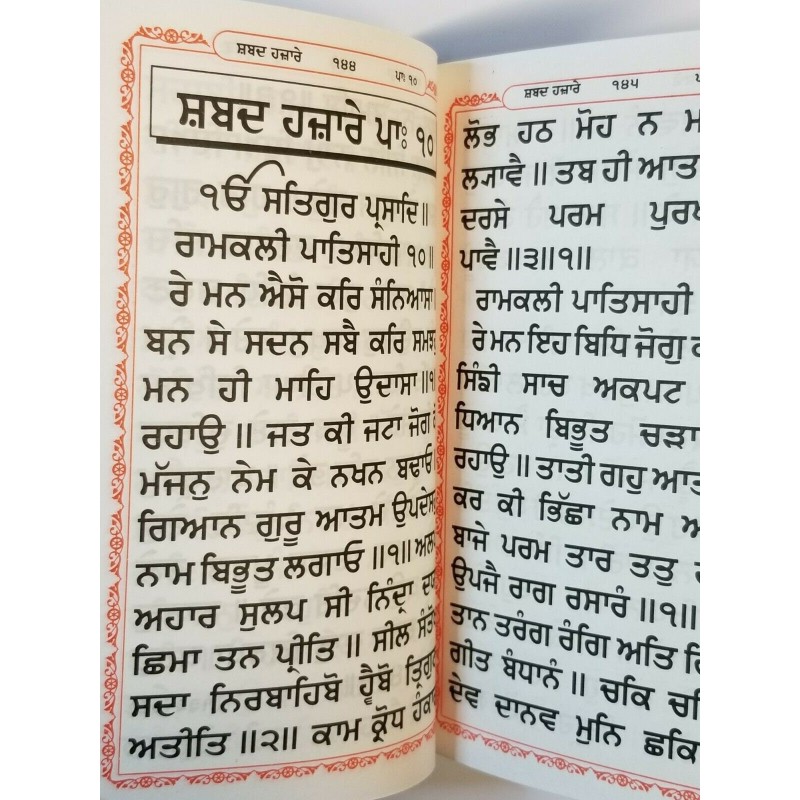 ਸ਼ਬਦ ਹਜ਼ਾਰੇ ੧੪੪ ਪਾਃ ੧੦
ਸ਼ਬਦ ਹਜ਼ਾਰੇ ਪਾਃ ੧੦
ੴ ਸਤਿਗੁਰ ਪ੍ਰਸਾਦਿ॥
ਰਾਮਕਲੀ ਪਾਤਿਸਾਹੀ ੧੦॥
ਰੇ ਮਨ ਐਸੋ ਕਰਿ ਸੰਨਿਆਸਾ॥
ਬਨ ਸੇ ਸਦਨ ਸਬੈ ਕਰਿ
ਮਨ ਹੀ ਮਾਹਿ ਉਦਾਸਾ॥੧॥
ਰਹਾਉ॥ ਜਤ ਕੀ ਜਟਾ ਜੋਗ
ਮੱਜਨੁ ਨੇਮ ਕੇ ਨਖਨ ਬਢਾਓ
ਗਿਆਨ ਗੁਰੂ ਆਤਮ ਉਪਦੇਸ
ਨਾਮ ਬਿਭੂਤ ਲਗਾਓ॥੧॥
ਅਹਾਰ ਸੁਲਪ ਸੀ ਨਿੰਦ੍ਰਾ
ਛਿਮਾ ਤਨ ਪ੍ਰੀਤਿ॥ ਸੀਲ
ਸਦਾ ਨਿਰਬਾਹਿਬੋ ਹ੍ਵੈਬੋ
ਅਤੀਤਿ॥੨॥ ਕਾਮ ਕ੍ਰੋਧ
ਸ਼ਬਦ ਹਜ਼ਾਰੇ ੧੪੫
ਲੋਭ ਹਠ ਮੋਹ ਨ
ਲ੍ਯਾਵੈ॥ ਤਬ ਹੀ
ਦਰਸੇ ਪਰਮ
ਪਾਵੈ॥੩॥੧॥
ਰਾਮਕਲੀ ਪਾਤਿਸਾਹੀ
ਰੇ ਮਨ ਇਹ ਬਿਧਿ ਜੋਗੁ
ਸਿੰਙੀ ਸਾਚ ਅਕਪਟ
ਧਿਆਨ ਬਿਭੂਤ
ਰਹਾਉ॥ ਤਾਤੀ ਗਹੁ
ਕਰ ਕੀ ਭਿੱਛਾ ਨਾਮ
ਬਾਜੇ ਪਰਮ ਤਾਰ ਤਤੁ
ਉਪਜੈ ਰਾਗ ਰਸਾਰੰ॥੧॥
ਤਾਨ ਤਰੰਗ ਰੰਗਿ ਅਤਿ
ਗੀਤ ਬੰਧਾਨੰ॥ ਚਕਿ
ਦੇਵ ਦਾਨਵ ਮੁਨਿ ਛਕਿ